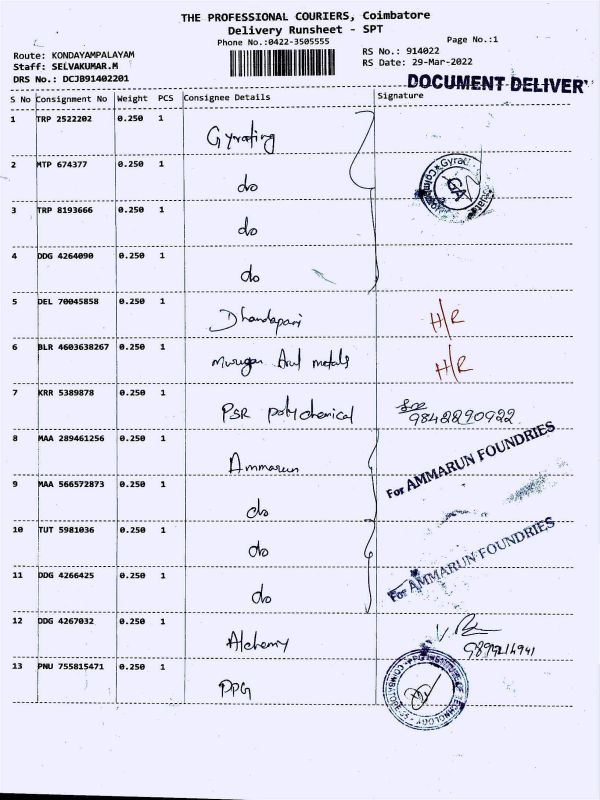 THE PROFESSIONAL COURIERS, Coimbatore
Delivery Runsheet - SPT
Phone No.:0422-3505555
Page No.:1
Route: KONDAYAMPALAYAM
RS No.: 914022
Staff: SELVAKUMAR.M
RS Date: 29-Mar-2022
DRS No.: DCJB91402201
DOCUMENT DELIVER
S No Consignment No Weight PCS Consignee Details Signature
1 TRP 2522202 0.250 1 Gyrating
2 MTP 674377 0.250 1 do
3 TRP 8193666 0.250 1 do
4 DDG 4264090 0.250 1 do
5 DEL 70045858 0.250 1 Dhandapani H/R
6 BLR 4603638267 0.250 1 Murugan Arul metals H/R
7 KRR 5389878 0.250 1 PSR polychemical 9842290922
8 MAA 289461256 0.250 1 Ammarun
For AMMARUN FOUNDRIES
9 MAA 566572873 0.250 1 do
10 TUT 5981036 0.250 1 do
For AMMARUN FOUNDRIES
11 DDG 4266425 0.250 1 do
12 DDG 4267032 0.250 1 Alchemy
13 PNU 755815471 0.250 1 PPG
PPG INSTITUTE OF TECHNOLOGY